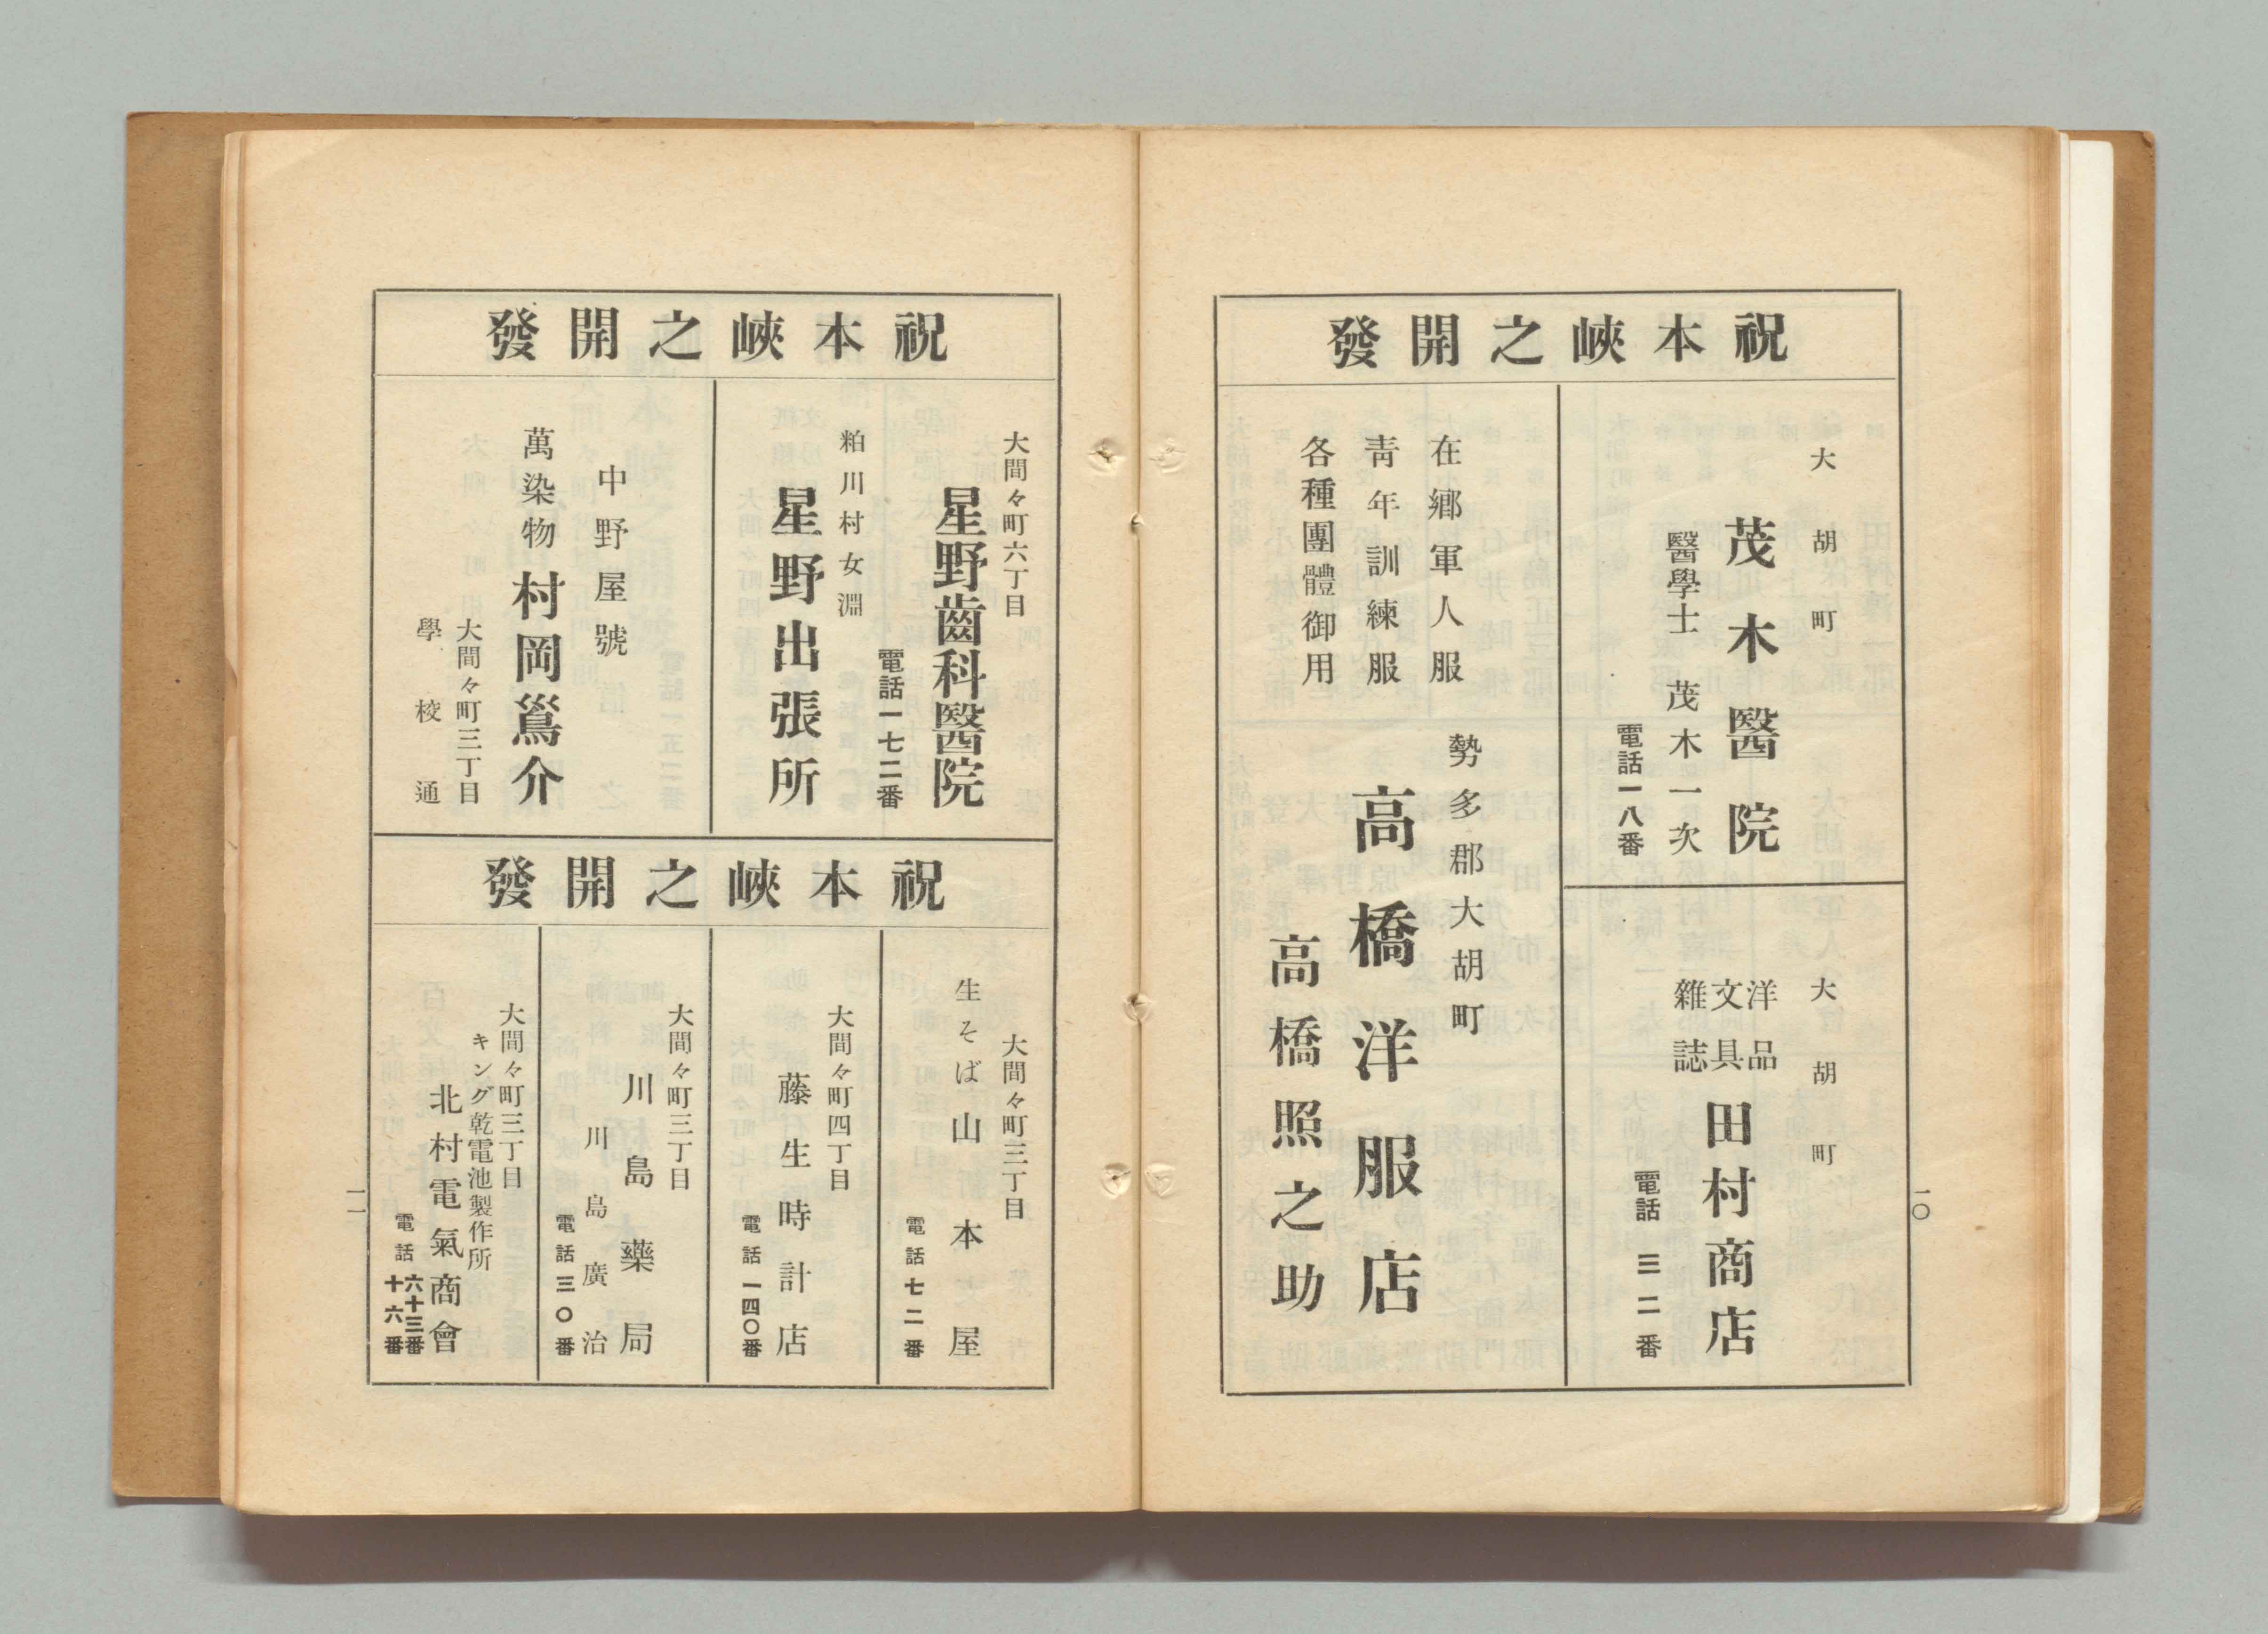 祝本峽之開發
大胡町
茂木醫院
醫學士　茂木一次
電話一八番
大胡町
洋品
文具
雜誌
田村商店
電話　三二番
在鄉軍人服
靑年訓練服
各種團體御用
勢多郡大胡町
高橋洋服店
高橋照之助
一〇
祝本峽之開發
大間々町六丁目
星野齒科醫院
電話一七二番
粕川村女淵
星野出張所
中野屋號
萬染物　村岡鴬介
大間々町三丁目
學校通
祝本峽之開發
大間々町三丁目
生そば　山本屋
電話七二番
大間々町四丁目
藤生時計店
電話一四〇番
大間々町三丁目
川島藥局
川島廣治
電話三〇番
大間々町三丁目
キング乾電池製作所
北村電氣商會
電話　六十三番
十六番
一一